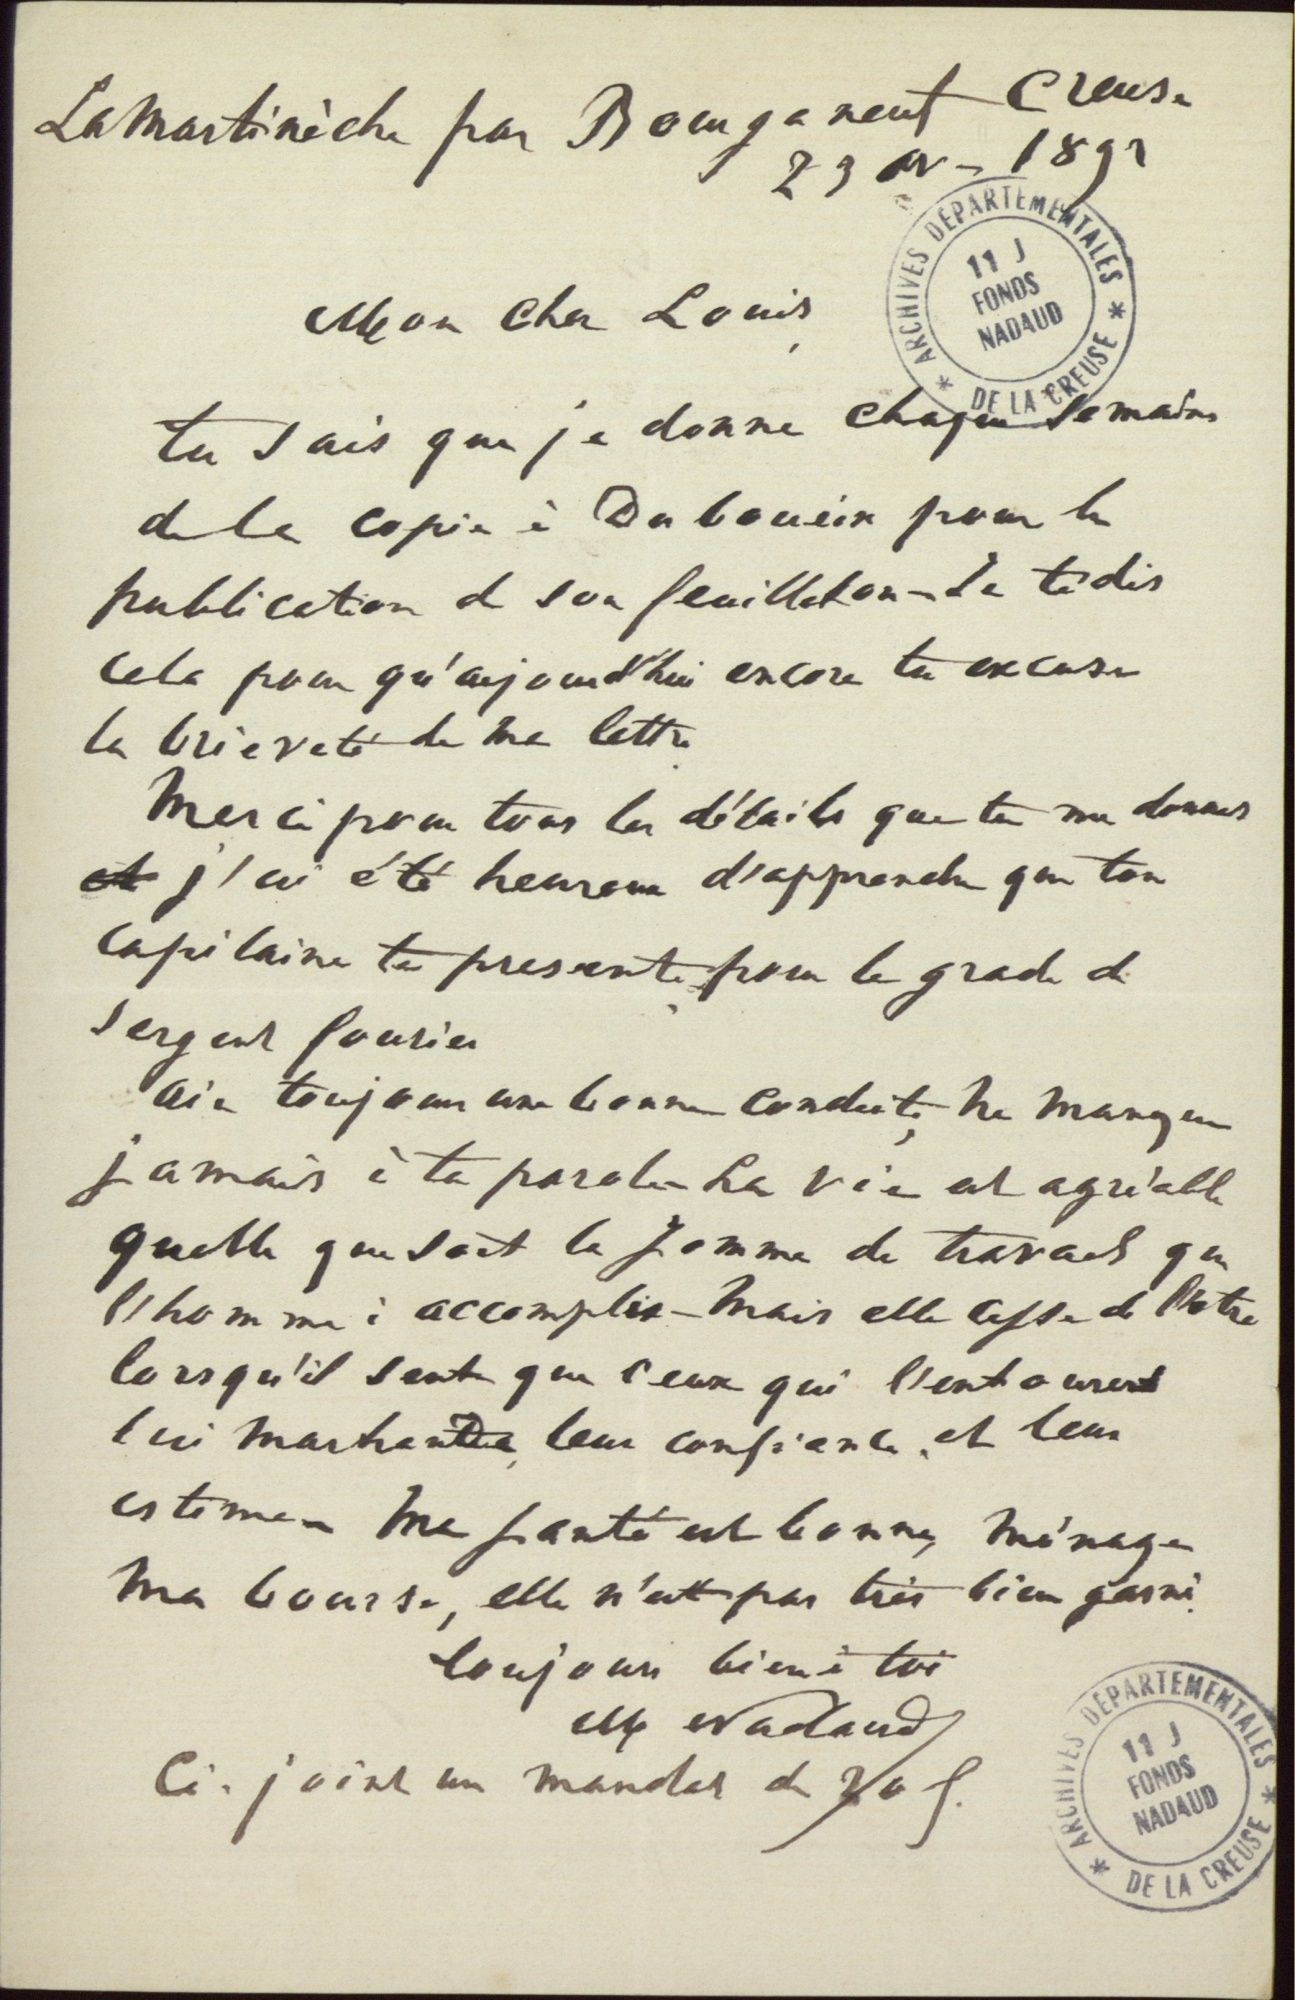 La Martinèche par Bourganeuf Creuse
23 av – 1891
ARCHIVES DÉPARTEMENTALES DE LA CREUSE
11 J
FONDS
NADAUD
Mon cher Louis,
tu sais que je donne chaque semaine
de la copie à Duboueix pour la
publication de son feuilleton – Je te dis
cela pour qu'aujourd'hui encore tu excuse
la brieveté de ma lettre.
Merci pour tous les détails que tu me donnes
et j'ai été heureux d'apprendre que ton
capitaine te presente pour le grade de
sergent fourier
aie toujours une bonne conduite, ne manque
jamais à ta parole – La vie est agréable
quelle que soit la somme de travail que
l'homme à accomplir – Mais elle cesse de l'etre
lorsqu'il sent que ceux qui l'entourent
lui marchande leur confiance et leur
estime – Ma santé est bonne, ménage
ma bourse, elle n'est pas très bien garni.
toujours bien à toi
M Nadaud
Ci-joint un mandat de 20 f.
ARCHIVES DÉPARTEMENTALES DE LA CREUSE
11 J
FONDS
NADAUD